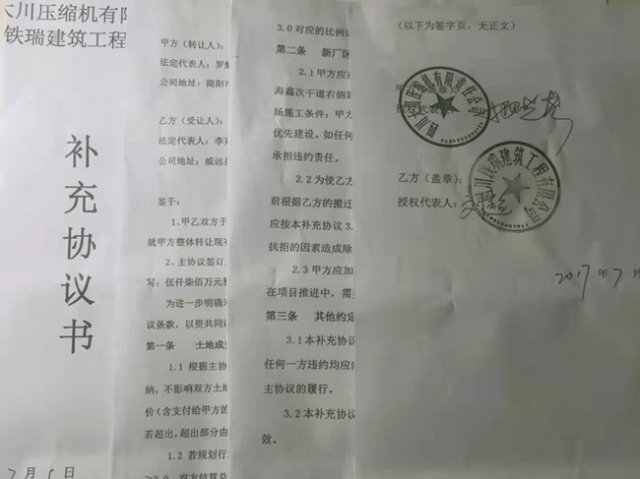 大川压缩机有限
铁瑞建筑工程
补充协议书
月 日
甲方（转让人）：
法定代表人：罗
公司地址：简阳市
乙方（受让人）：
法定代表人：李
公司地址：威远县
鉴于：
1、甲乙双方于
就甲方整体转让现有
2、主协议签订
写：伍仟柒佰万元整
为进一步明确
议条款，以资共同
第一条 土地成
1.1 根据主协
纳，不影响双方土地
价（含支付给甲方的
若超出，超出部分由
1.2 若规划行
双方结算总
3.0 对应的比例
第二条 新厂区
2.1 甲方应
海鑫次干道右侧
场施工条件；甲方
优先建设。如任何
承担违约责任。
2.2 为使乙方
前根据乙方的搬迁
应按本补充协议 3.
抗拒的因素造成除
2.3 甲方应加
在项目推进中，需
第三条 其他约定
3.1 本补充协议
任何一方违约均应
主协议的履行。
3.2 本补充协议
效。
（以下为签字页，无正文）
授权代表人：
四川大川压缩机有限责任公司
乙方（盖章）：
授权代表人：
四川铁瑞建筑工程有限公司
2017 年 7 月